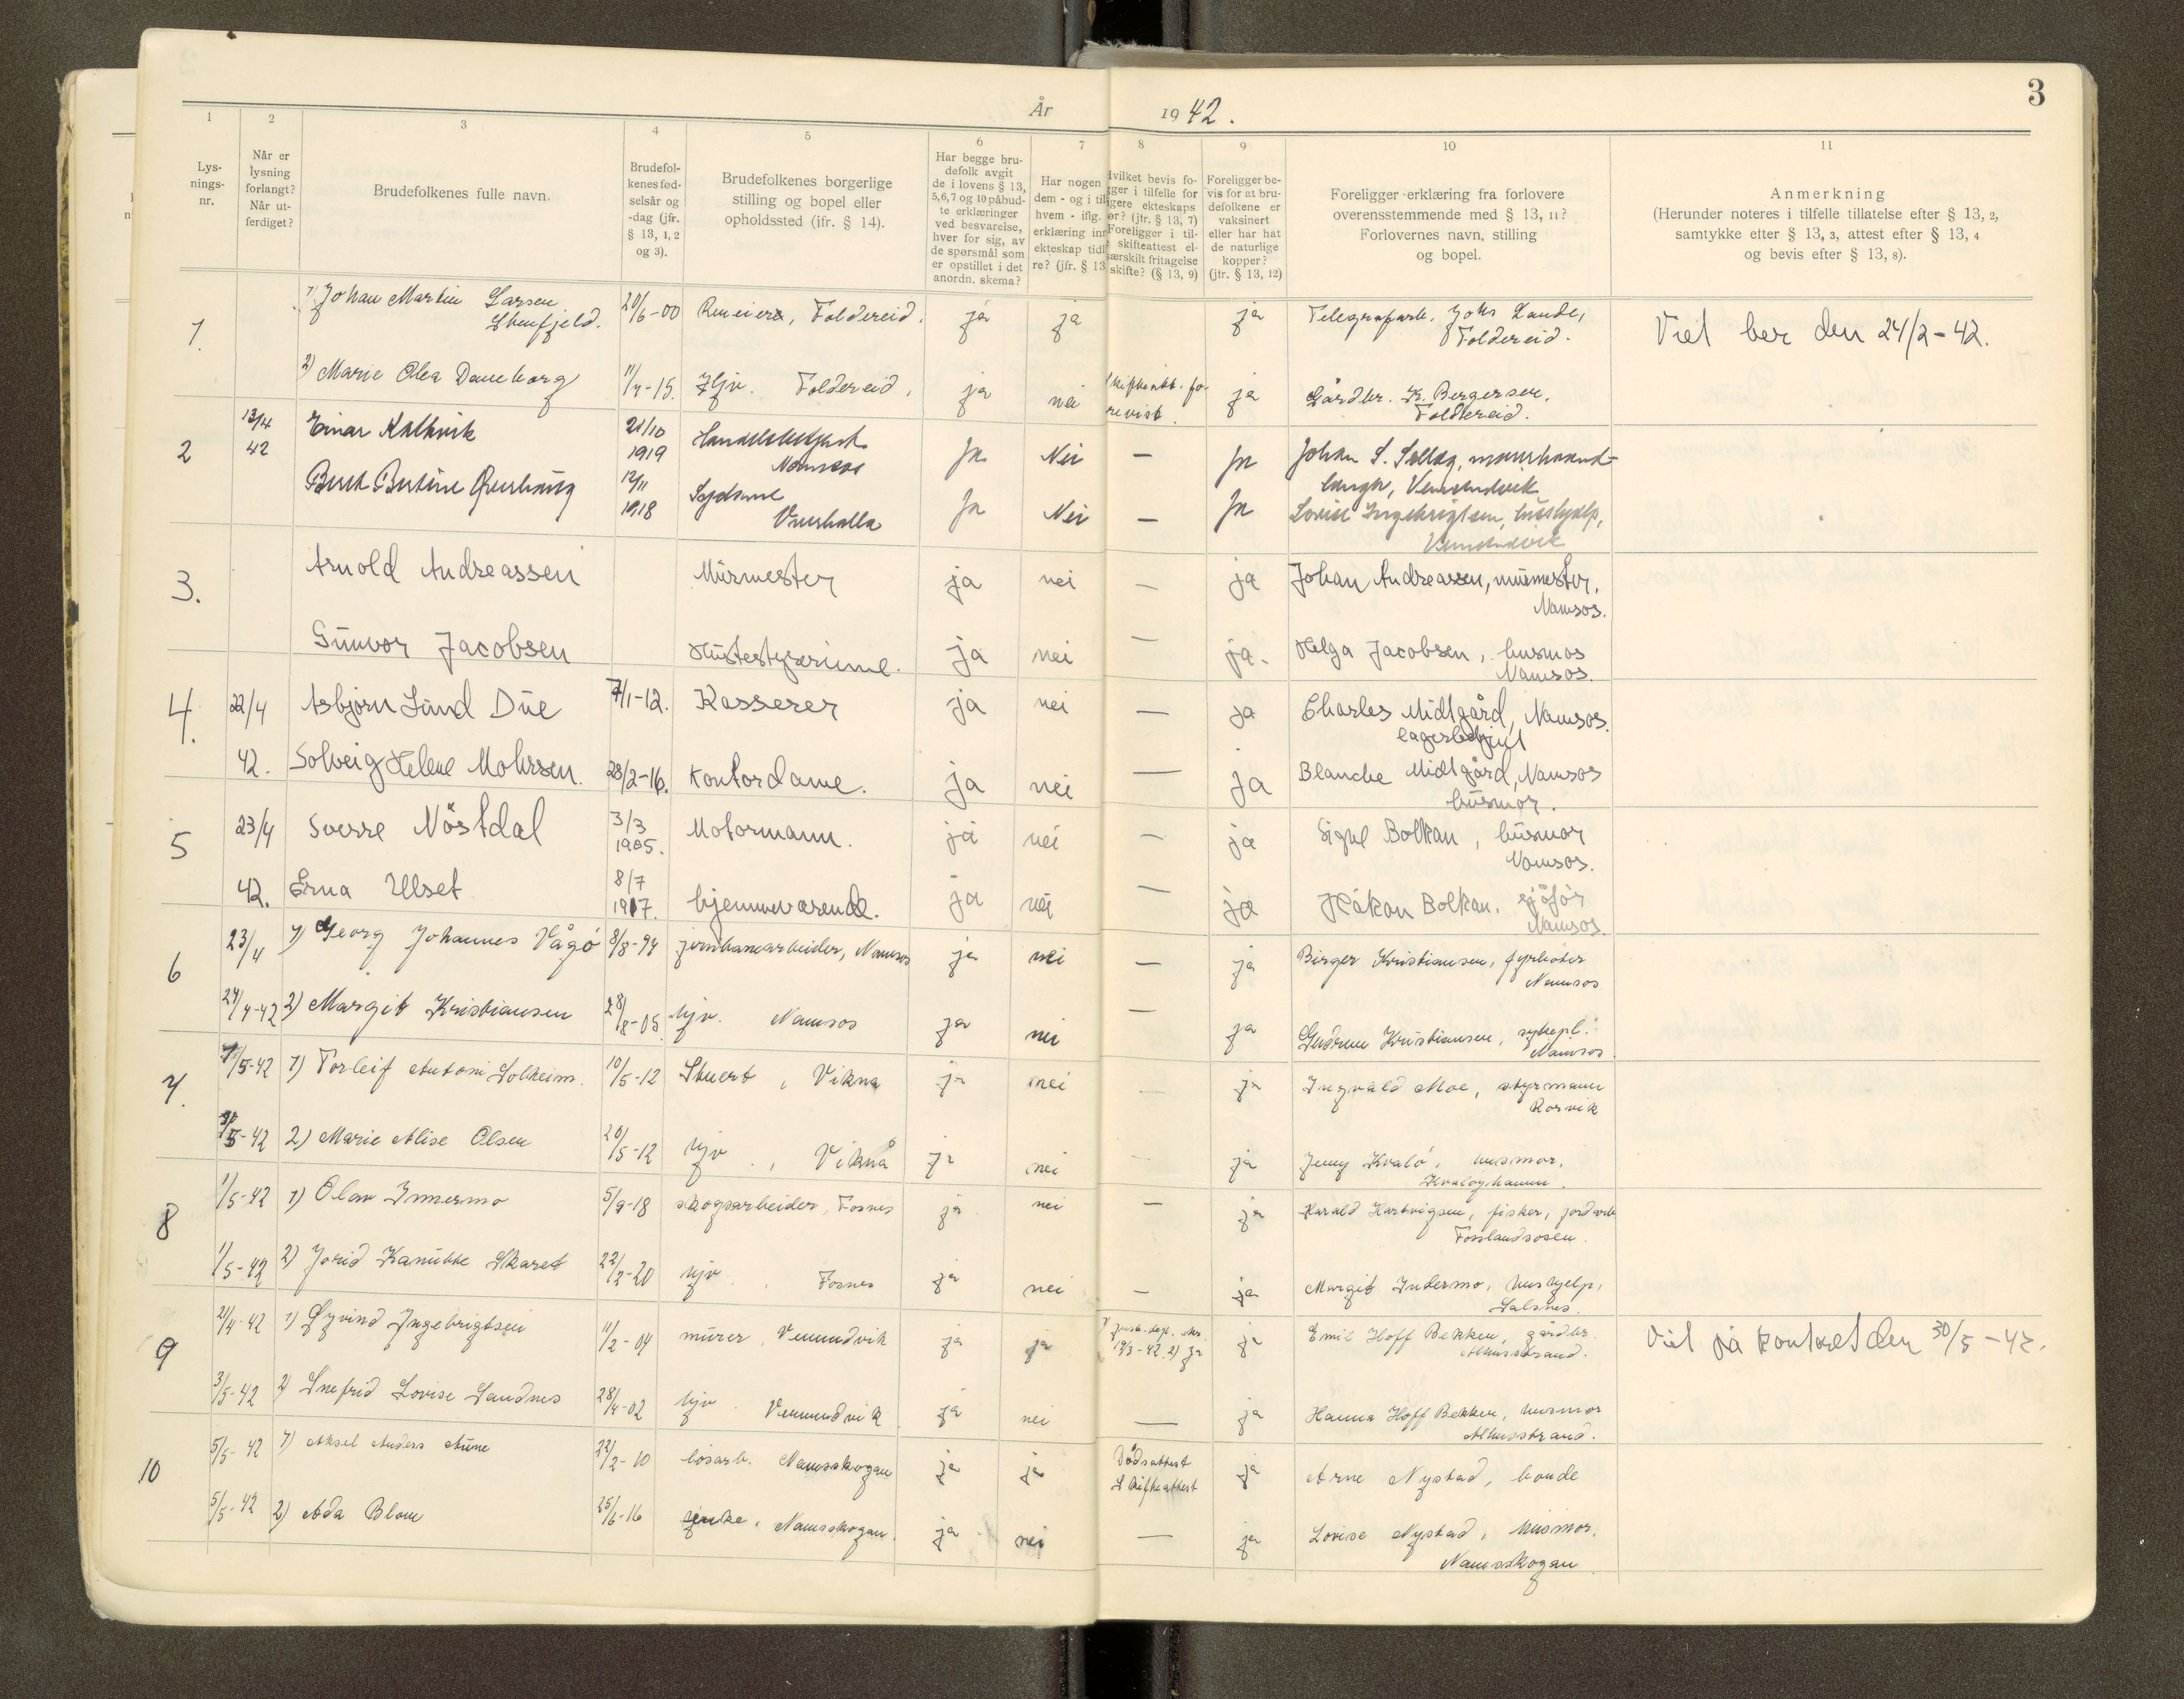 3
År 1942.
1 2 3 4 5 6 7 8 9 10 11
Lys-
nings-
nr.
Når er
lysning
forlangt?
Når ut-
ferdiget?
Brudefolkenes fulle navn.
Brudefol-
kenes fød-
selsår og
-dag (jfr.
§ 13, 1, 2
og 3).
Brudefolkenes borgerlige
stilling og bopel eller
opholdssted (jfr. § 14).
Har begge bru-
defolk avgit
de i lovens § 13,
5,6,7 og 10 påbud-
te erklæringer
ved besvarelse,
hver for sig, av
de spørsmål som
er opstillet i det
anordn. skema?
Har nogen
dem - og i til
hvem - iflg.
erklæring inn
ekteskap tidl
re? (jfr. § 13
Hvilket bevis fo-
gger i tilfelle for
ligere ekteskaps
ør? (jfr. § 13, 7)
Foreligger i til-
skifteattest el-
særskilt fritagelse
skifte? (§ 13, 9)
Foreligger be-
vis for at bru-
defolkene er
vaksinert
eller har hat
de naturlige
kopper?
(jfr. § 13, 12)
Foreligger erklæring fra forlovere
overensstemmende med § 13, 11?
Forlovernes navn, stilling
og bopel.
Anmerkning
(Herunder noteres i tilfelle tillatelse efter § 13, 2,
samtykke efter § 13, 3, attest efter § 13, 4
og bevis efter § 13, 8).
1. 1) Johan Martin Larsen 20/6-00 Foldereid. ja ja ja Telegrafarb. Johs Lande, Viet her den 24/2-42.
Foldereid.
2) Marie Olea Daneborg 11/4-15. Hjv. Foldereid, ja nei skifteatt. fo- ja Gårdbr. K. Bergersen,
revist. Foldereid.
2 13/4 Einar Kalkvik 21/10 Handelsbetjent Ja Nei — Ja Johan S. Sellæg, manufakturhand-
42 1919 Namsos langer, Vemundvik
Berit Bertine Øverhaug 12/11 Sydame Ja Nei — Ja Lovise Ingebrigtsen, hushjelp,
1918 Overhalla Vemundvik
3. Arnold Andreassen Murmester ja nei — ja Johan Andreassen, murmester,
Namsos.
Gunvor Jacobsen Hustestyrerinne. ja nei — ja. Helga Jacobsen, husmor
Namsos.
4. 22/4 Asbjørn Lund Due 7/1-12. Kasserer ja nei — ja Charles Midtgård, Namsos.
lagerbetjent
42. Solveig Helene Mohrsen. 28/2-16. Kontordame. ja nei — ja Blanche Midtgård, Namsos
husmor.
5 23/4 Sverre Nöstdal 3/3 Motormann. ja nei — ja Signe Bolkan, husmor
1905. Namsos.
42. Erna Ulset 8/7 hjemmeværende. ja nei — ja Håkon Bolkan, sjåfør
1917. Namsos.
6 23/4 1) Georg Johannes Vågø 8/8-94 jernbanearbeider, Namsos ja nei — ja Birger Kristiansen, fyrbøter
Namsos
24/4-42 2) Margit Kristiansen 28/8-05 hjv. Namsos ja nei — ja Gudrun Kristiansen, sykepl.
Namsos.
7. 1/5-42 1) Torleif Antoni Solheim. 10/5-12 Stuert, Vikna ja nei — ja Ingvald Moe, styrmann
Rørvik
5-42 2) Marie Alise Olsen 20/5-12 hjv., Vikna ja nei — ja Jenny Kvalø, husmor,
8 1/5-42 1) Olav Innermo 5/9-18 skogsarbeider, Fosnes ja nei — ja Harald Hartvigsen, fisker, jordarb.
Fosslandsosen.
1/5-42 2) Jorid Kanutte Skaret 22/2-20 hjv. Fosnes ja nei — ja Margit Indermo, hushjelp,
Salsnes.
9 21/4-42 1) Øyvind Ingebrigtsen 11/2-04 murer, Vemundvik ja ja 1) just.dept. skr. ja Emil Hoff Bekken, gårdbr. Viet på kontoret den 30/5-42.
19/3-42. 2) ja Alhusstrand.
3/5-42 2) Snefrid Lovise Sandnes 28/4-02 hjv. Vemundvik ja nei — ja Hanna Hoff Bekken, husmor
Alhusstrand.
10 5/5-42 1) Aksel Anders Aune 22/2-10 løsarb. Namsskogan ja ja Dødsattest ja Arne Nystad, bonde
Skifteattest
5/5-42 2) Ada Blom 25/6-16 enke, Namsskogan. ja nei — ja Lovise Nystad, husmor,
Namsskogan